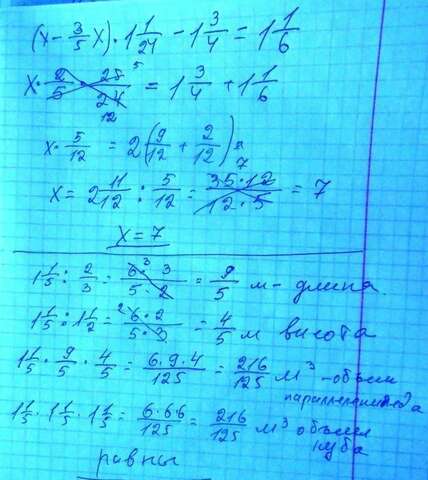 (x - 3/5 x) · 1 1/24 - 1 3/4 = 1 1/6
x · 2/5 · 25/24 = 1 3/4 + 1 1/6
5
12
x · 5/12 = 2 (9/12 + 2/12)
x = 2 11/12 : 5/12 = 35·12/12·5 = 7
7
x = 7
1 1/5 : 2/3 = 6·3/5·2 = 9/5 м - длина
3
1 1/5 : 1 1/2 = 6·2/5·3 = 4/5 м высота
2
1 1/5 · 9/5 · 4/5 = 6·9·4/125 = 216/125 м³ - объем
параллелепипеда
1 1/5 · 1 1/5 · 1 1/5 = 6·6·6/125 = 216/125 м³ объем
куба
равны